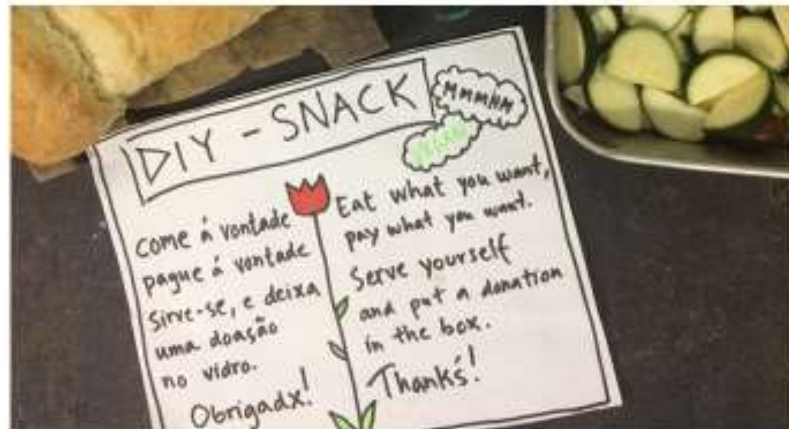 DIY - SNACK
MMMHM
VEGAN
come á vontade
pague á vontade
Sirve-se, e deixa
uma doação
no vidro.
Obrigadx!
Eat what you want,
pay what you want.
Serve yourself
and put a donation
in the box.
Thanks!